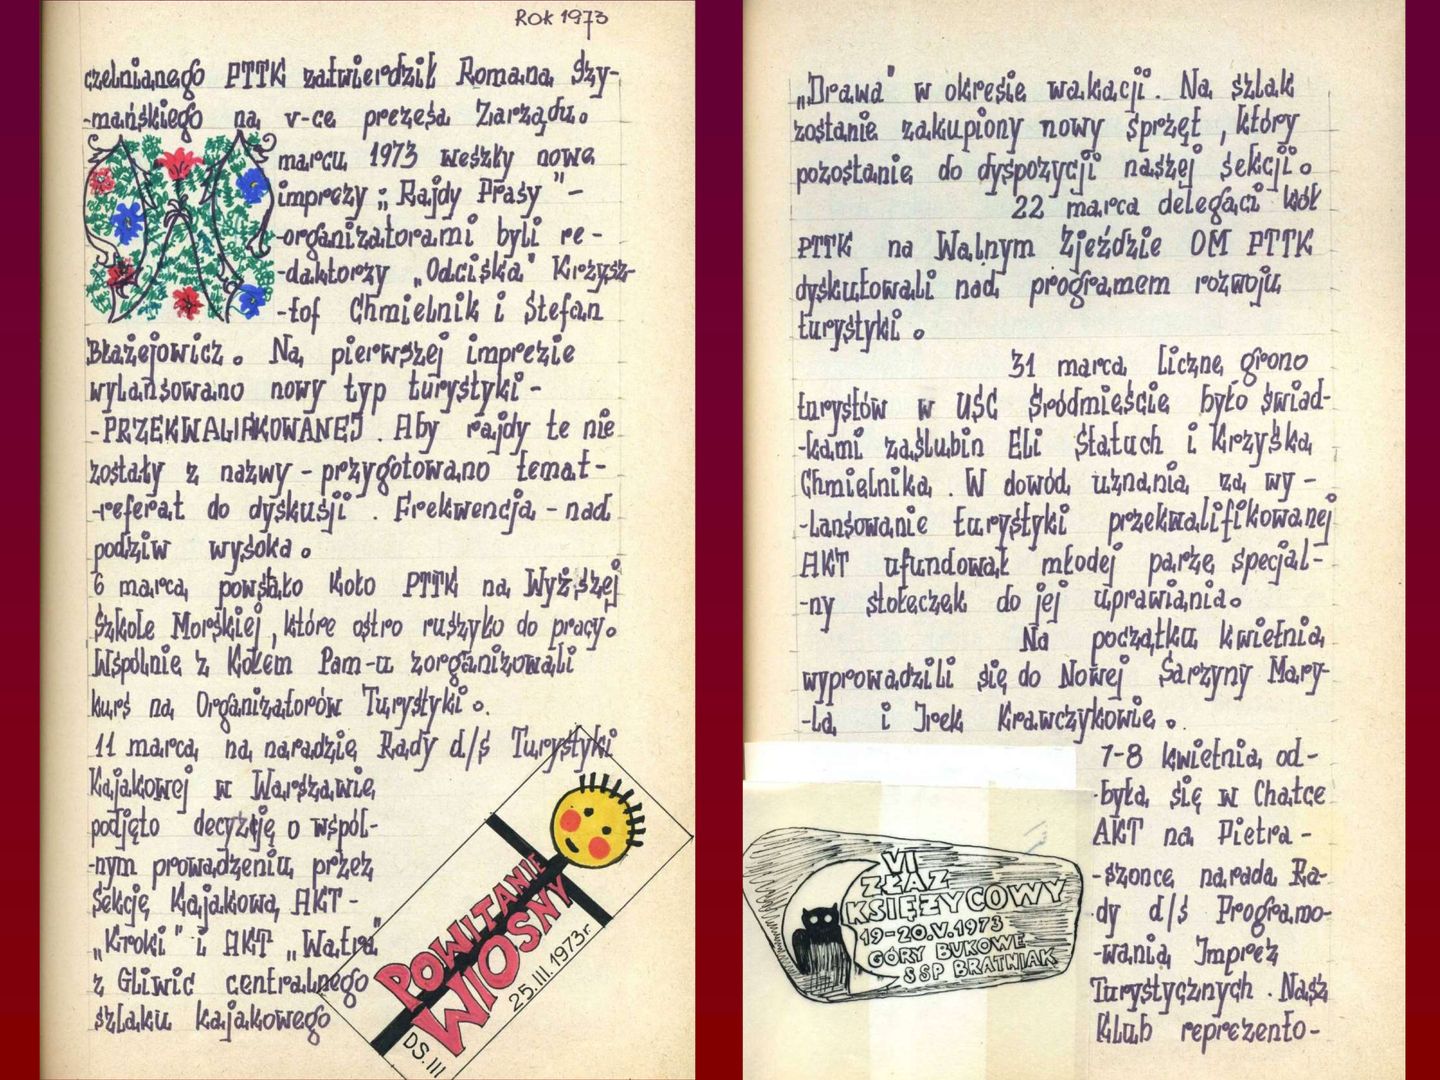 Rok 1973
czelnianego PTTK zatwierdził Romana Szy-
-mańskiego na v-ce prezesa Zarządu.
W marcu 1973 weszły nowe
imprezy „Rajdy Prasy" -
-organizatorami byli re-
-daktorzy „Odciska" Krzysz-
-tof Chmielnik i Stefan
Błażejowicz. Na pierwszej imprezie
wylansowano nowy typ turystyki -
-PRZEKWALIFIKOWANEJ. Aby rajdy te nie
zostały z nazwy - przygotowano temat-
-referat do dyskusji. Frekwencja - nad
podziw wysoka.
6 marca powstało Koło PTTK na Wyższej
Szkole Morskiej, które ostro ruszyło do pracy.
Wspólnie z Kołem Pam-u zorganizowali
kurs na Organizatorów Turystyki.
11 marca na naradzie Rady d/s Turystyki
Kajakowej w Warszawie
podjęto decyzję o wspól-
-nym prowadzeniu przez
Sekcję Kajakową AKT-
„Kroki" i AKT „Watra"
z Gliwic centralnego
szlaku kajakowego
POWITANIE
WIOSNY
25.III.1973r.
DS. III
„Drawa" w okresie wakacji. Na szlak
zostanie zakupiony nowy sprzęt, który
pozostanie do dyspozycji naszej sekcji.
22 marca delegaci kół
PTTK na Walnym Zjeździe OM PTTK
dyskutowali nad programem rozwoju
turystyki.
31 marca liczne grono
turystów w USC Śródmieście było świad-
-kami zaślubin Eli Statuch i Krzyśka
Chmielnika. W dowód uznania za wy-
-lansowanie turystyki przekwalifikowanej
AKT ufundował młodej parze specjal-
-ny stołeczek do jej uprawiania.
Na początku kwietnia
wyprowadzili się do Nowej Sarzyny Mary-
-la i Irek Krawczykowie.
7-8 kwietnia od-
-była się w Chatce
AKT na Pietra-
-szonce narada Ra-
dy d/s Programo-
-wania Imprez
Turystycznych. Nasz
Klub reprezento-
VI
ZŁAZ
KSIĘŻYCOWY
19-20.V.1973
GÓRY BUKOWE
SSP BRATNIAK